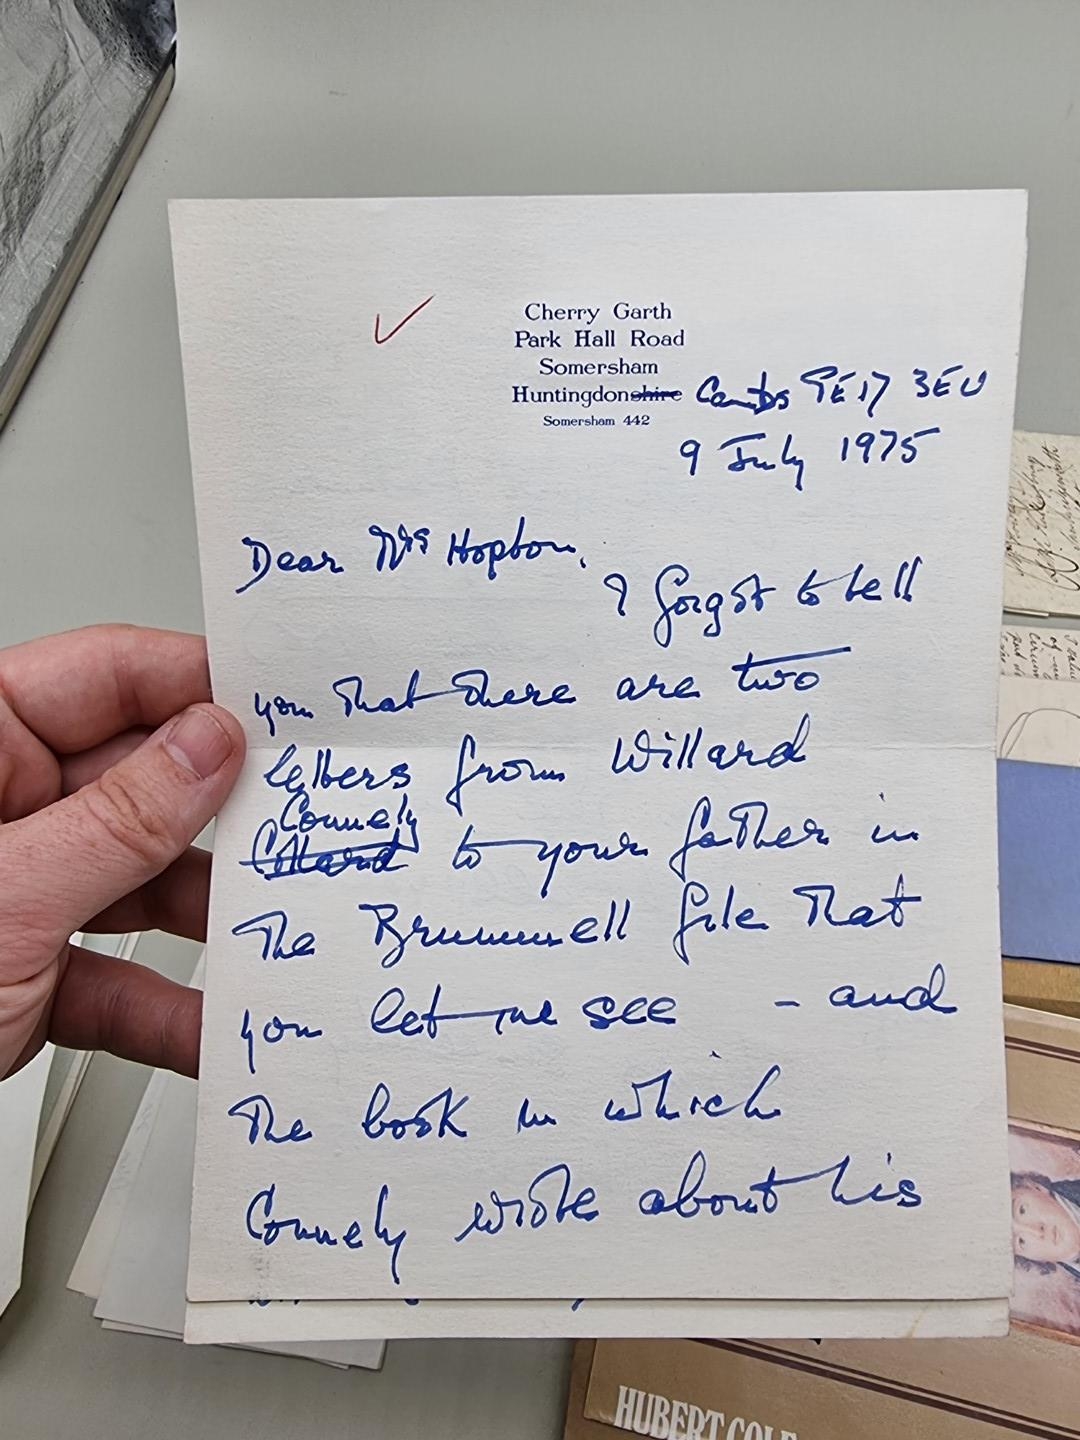 Cherry Garth
Park Hall Road
Somersham
Huntingdonshire Cambs PE17 3EU
Somersham 442
9 July 1975
Dear Mrs Hopton,
I forgot to tell
you that there are two
letters from Willard
Connely
Collard to your father in
The Brummell file that
you let me see - and
The book in which
Connely wrote about his
HUBERT COLE